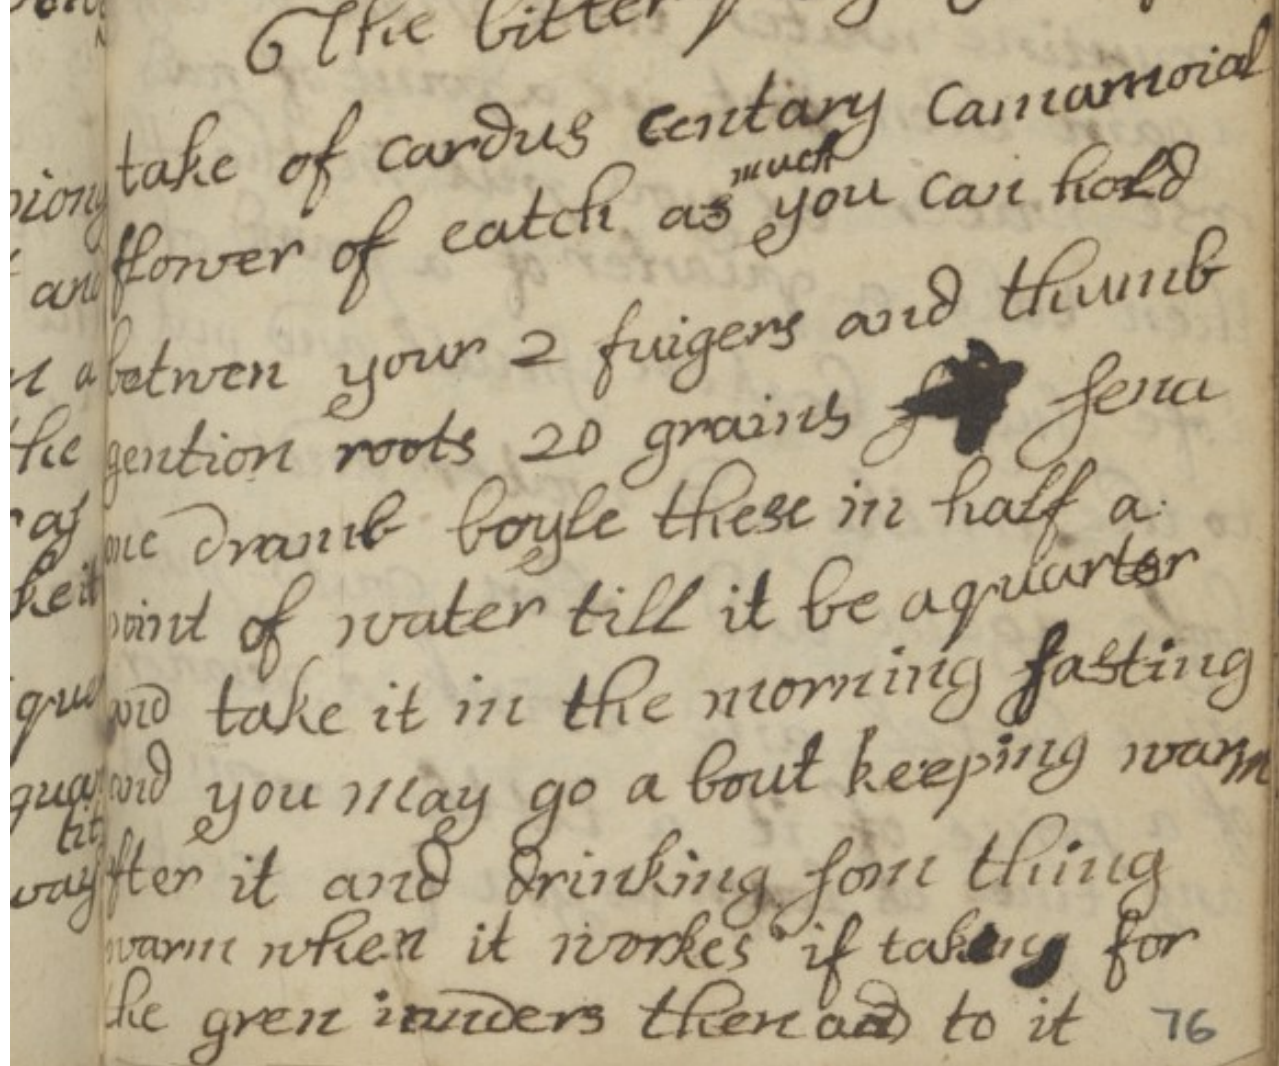 The bitter
take of cardus centary Camamoial
flower of eatch as much you can hold
betwen your 2 fingers and thumb
gention roots 20 grains sena
one dramb boyle these in half a
point of water till it be a quarter
and take it in the morning fasting
and you may go a bout keeping warm
after it and drinking som thing
warm when it workes if taking for
the gren ianders then add to it
76